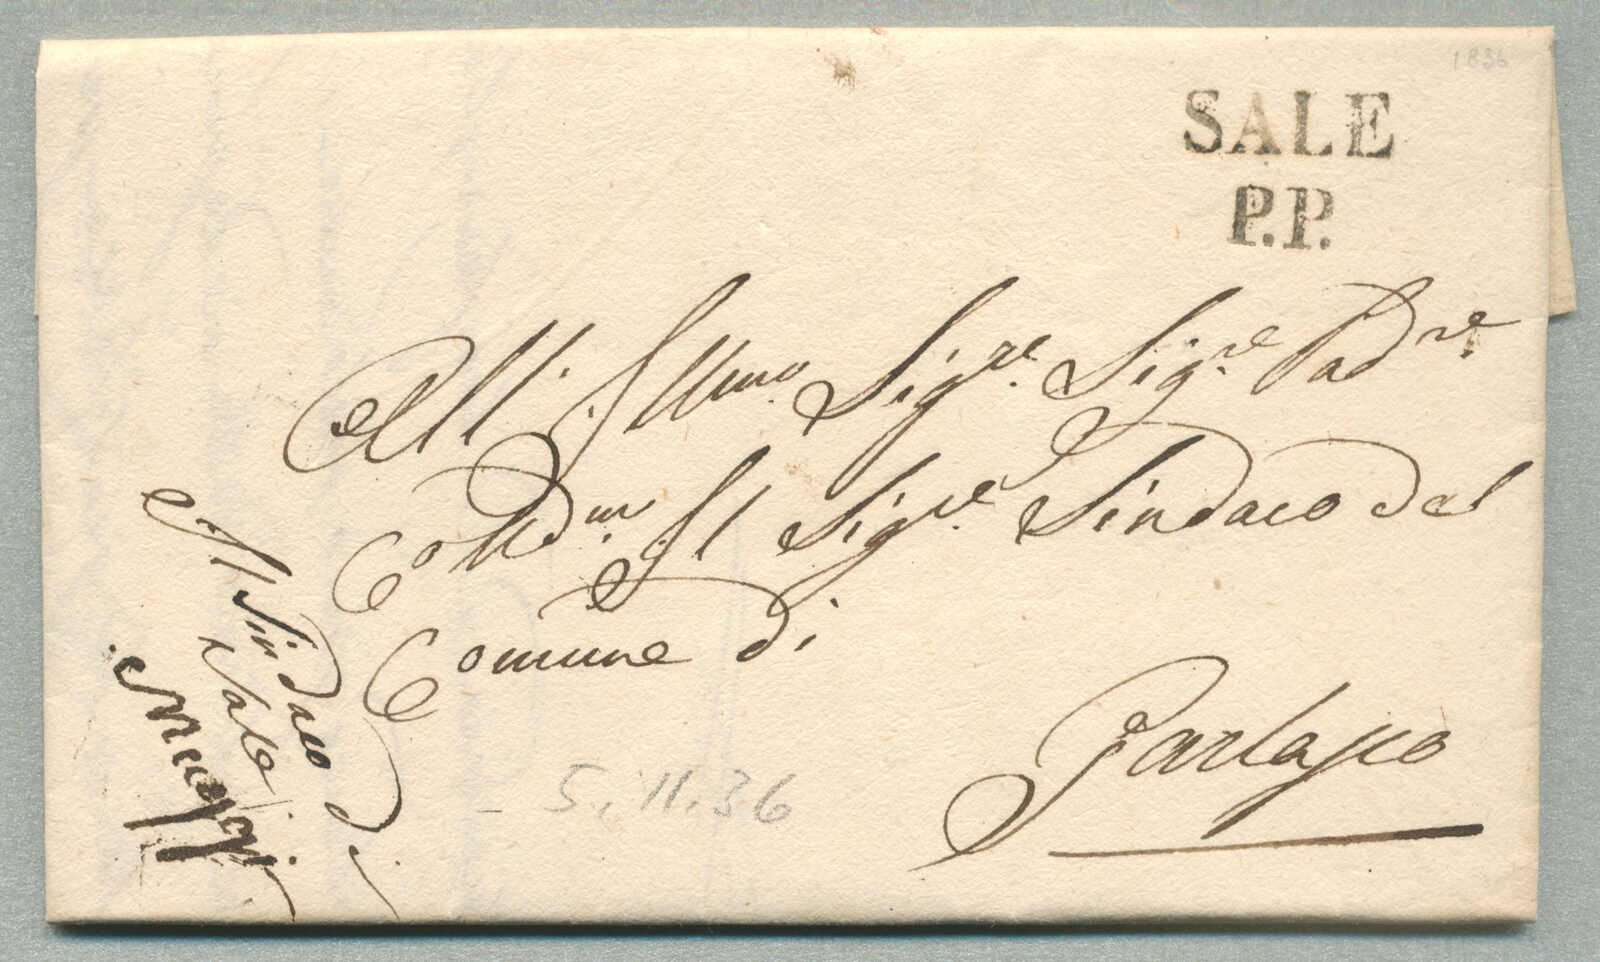 1836
SALE
P.P.
All'Illmo. Sigre. Sigre. Padre.
Coldmo. Il Sigre. Sindaco del
Comune di
Garlasco
Il Sindaco di
Sale
5.11.36